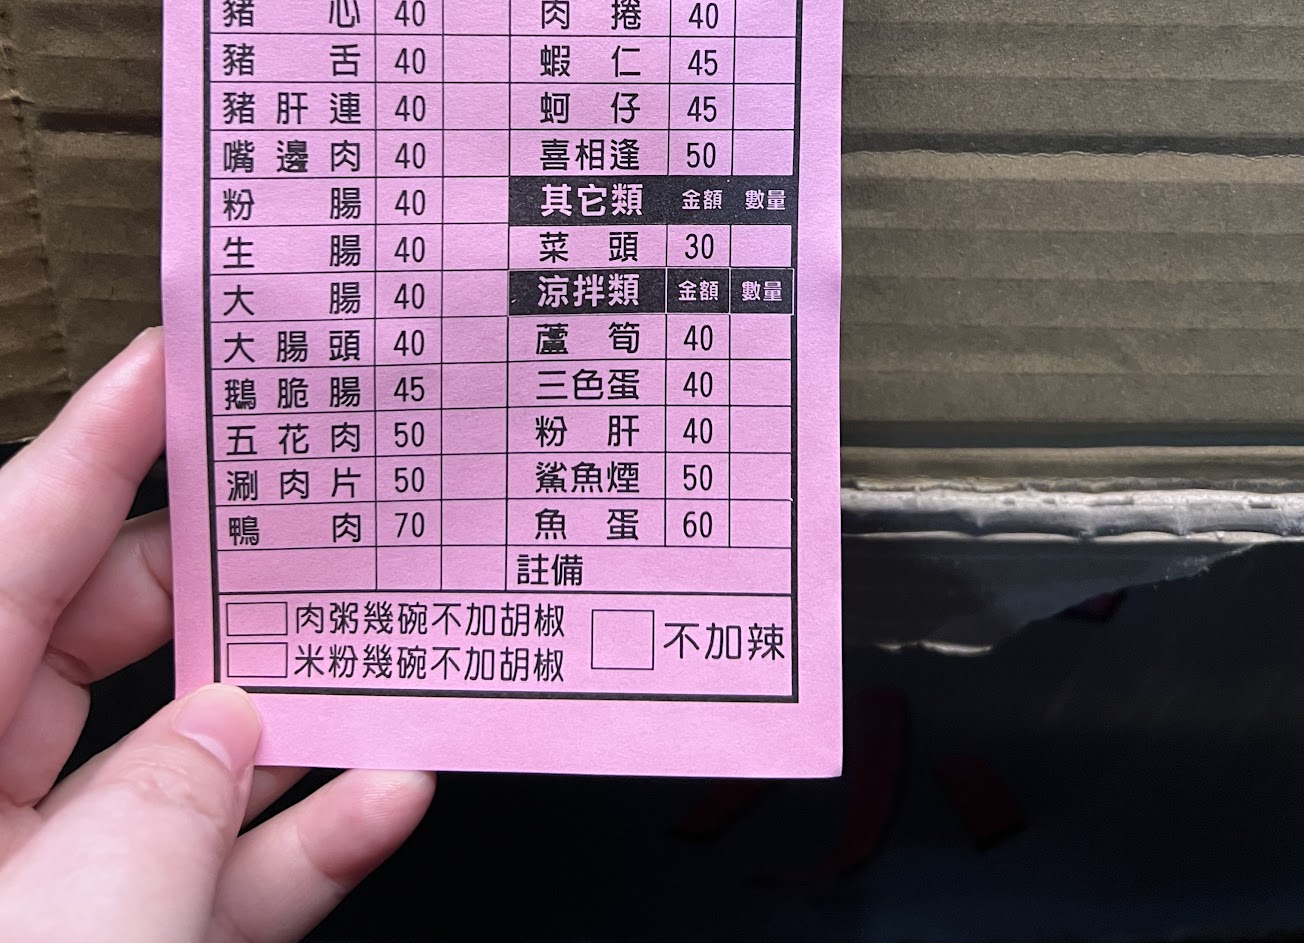 豬心 40
豬舌 40
豬肝連 40
嘴邊肉 40
粉腸 40
生腸 40
大腸 40
大腸頭 40
鵝脆腸 45
五花肉 50
涮肉片 50
鴨肉 70
肉捲 40
蝦仁 45
蚵仔 45
喜相逢 50
其它類 金額 數量
菜頭 30
涼拌類 金額 數量
蘆筍 40
三色蛋 40
粉肝 40
鯊魚煙 50
魚蛋 60
註備
肉粥幾碗不加胡椒
米粉幾碗不加胡椒
不加辣